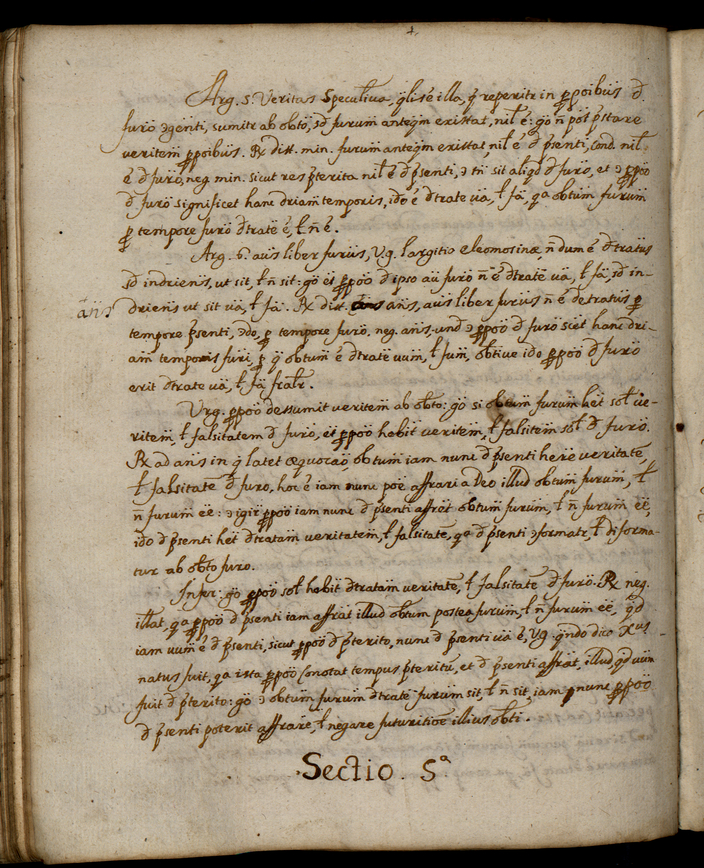 4.
Arg. 5. Veritas Speculiva, qlis é illa, q̃ reperitr in ppoibus d̄
furo ɔgenti, sumitr ab obto, sd̄ furum anteqm existat, nil é: go ñ pot pstare
veritem ppoibus. Rx dist. min. furum anteqm existat, nil é d̄ psenti, Cond. nil
é d̄ furo, neg. min. sicut res pterita nil é d̄ psenti, & tñ sit aliqd d̄ furo, et ɔ ppoo
d̄ furo significet hanc driam temporis, ido é dtrate va, ł fa, qa obtum furum
p tempore furo dtrate é, ł ñ é.
Arg. 6. aus liber furus, V.g. largitio eleomosinæ, ñ dum é dtratus
sd̄ indriens, ut sit, ł ñ sit: go et ppoo d̄ ipso au furo ñ é dtrate va, ł fa, sd̄ in-
driens ut sit va, ł fa. Rx dist. ans, aus liber furus ñ é detratus p
ans
tempore psenti, ɔdo, p tempore furo, neg. ans, und ɔ ppoo d̄ furo sicet hanc dri-
am temporis furi, p q̃ obtum é dtrate vum, ł fum, obtive ido ppoo d̄ furo
erit dtrate va, ł fa fratr.
Urg. ppoo dessumit veritem ab obto: go si obtum furum het sol ve-
ritem ł falsitatem d̄ furo, et ppoo hebit veritem, ł falsitem sol d̄ furo.
Rx ad ans in q latet æquocao, obtum iam nunc d̄ psenti here veritate,
ł falsitate d̄ furo, hoc é iam nunc poe affrari a Deo illud obtum furum, ł
ñ furum ée: ɔ igir ppoo iam nunc d̄ psenti affret obtum furum, ł ñ furum ée,
ido d̄ psenti het dtratam veritatem, ł falsitate, qa d̄ psenti ɔformatr, ł diforma-
tur ab obto furo.
Infer: go ppoo sol hebit dtratam veritate, ł falsitate d̄ furo. Rx neg.
illat, qa ppoo d̄ psenti iam affrat illud obtum postea furum, ł ñ furum ée, qd
iam vum é d̄ psenti, sicut ppoo d̄ pterito, nunc d̄ psenti va é, Vg. qndo dico Xus
natus fuit, qa ista ppoo Conotat tempus pteritu, et d̄ psenti affrat, illud, qd vum
fuit d̄ pterito: go ɔ obtum furum dtrate furum sit, ł ñ sit, iam nunc ppoo
d̄ psenti poterit affrare, ł negare futuritioe illius obti.
Sectio. 5ª